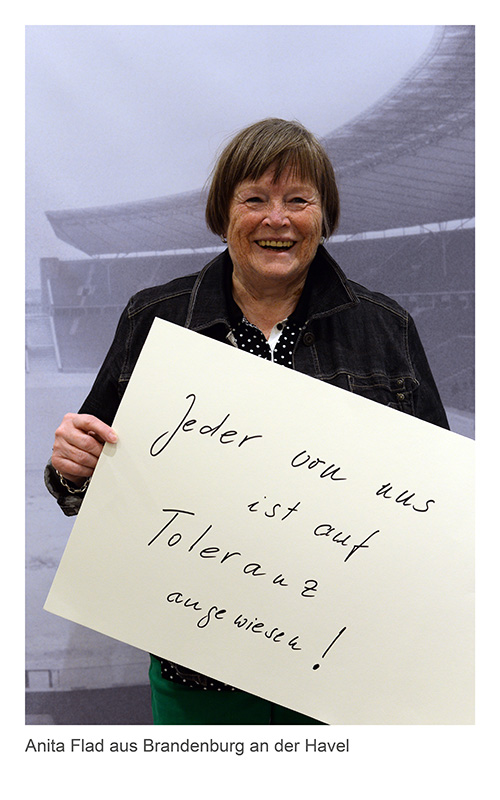 Jeder von uns
ist auf
Toleranz
angewiesen!
Anita Flad aus Brandenburg an der Havel